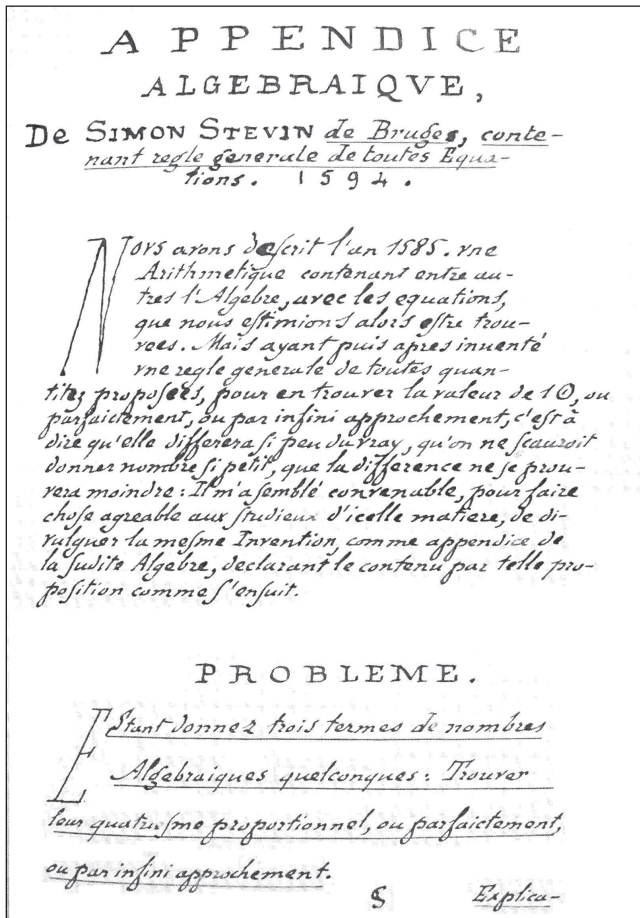 APPENDICE
ALGEBRAIQVE,
De SIMON STEVIN de Bruges, conte-
nant regle generale de toutes Equa-
tions. 1594.
NOVS avons deſcrit l'an 1585. vne
Arithmetique contenant entre au-
tres l'Algebre, avec les equations,
que nous eſtimions alors eſtre trou-
vees. Mais ayant puis apres inuenté
vne regle generale de toutes quan-
titez propoſees, pour en trouver la valeur de 1 ⊙, ou
parfaictement, ou par infini approchement, c'eſt à
dire qu'elle differera ſi peu du vray, qu'on ne ſcauroit
donner nombre ſi petit, que la difference ne ſe prou-
vera moindre: Il m'a ſemblé convenable, pour faire
choſe agreable aux ſtudieux d'icelle matiere, de di-
vulguer la meſme Invention, comme appendice de
la ſudite Algebre, declarant le contenu par telle pro-
poſition comme ſ'enſuit.
PROBLEME.
EStant donnez trois termes de nombres
Algebraiques quelconques: Trouver
leur quatrieſme proportionnel, ou parfaictement,
ou par infini approchement.
S Explica-